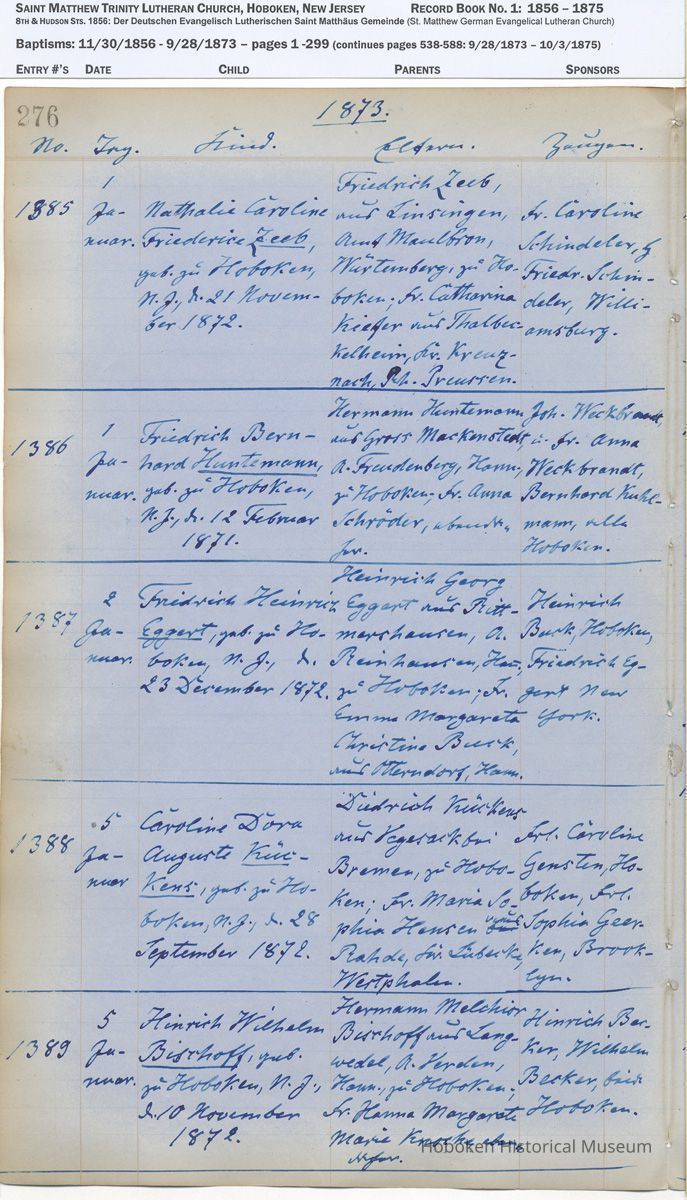 SAINT MATTHEW TRINITY LUTHERAN CHURCH, HOBOKEN, NEW JERSEY RECORD BOOK NO. 1: 1856 – 1875
8TH & HUDSON STS. 1856: Der Deutschen Evangelisch Lutherischen Saint Matthäus Gemeinde (St. Matthew German Evangelical Lutheran Church)
Baptisms: 11/30/1856 - 9/28/1873 – pages 1 -299 (continues pages 538-588: 9/28/1873 – 10/3/1875)
ENTRY #'S DATE CHILD PARENTS SPONSORS
276
1873.
No. Tag. Kind. Eltern. Zeugen.
1385
1
Ja-
nuar.
Nathalie Caroline
Friederice Zeeb,
geb. zu Hoboken,
N. J., d. 21 Novem-
ber 1872.
Friedrich Zeeb,
aus Linsingen,
Amt Maulbron,
Würtemberg, zu Ho-
boken; Fr. Catharina
Kiefer aus Thalbec-
kelheim, Kr. Kreuz-
nach, Rh. Preussen.
Fr. Caroline
Schindeler, &
Friedr. Schin-
deler, Willi-
amsburg.
1386
1
Ja-
nuar.
Friedrich Bern-
hard Huntemann,
geb. zu Hoboken,
N. J., d. 12 Februar
1871.
Hermann Huntemann
aus Gross Mackenstedt,
A. Freudenberg, Hann.,
zu Hoboken; Fr. Anna
Schröder, ebenda-
her.
Joh. Weckbrandt,
u. Fr. Anna
Weckbrandt,
Bernhard Kuhl-
mann, alle
Hoboken.
1387
2
Ja-
nuar.
Friedrich Heinrich
Eggert, geb. zu Ho-
boken, N. J., d.
23 December 1872.
Heinrich Georg
Eggert aus Ritt-
marshausen, A.
Reinhausen, Han.,
zu Hoboken; Fr.
Emma Margareta
Christine Bueck,
aus Otterndorf, Hann.
Heinrich
Buck, Hoboken,
Friedrich Eg-
gert New
York.
1388
5
Ja-
nuar
Caroline Dora
Auguste Küc-
kens, geb. zu Ho-
boken, N. J., d. 28
September 1872.
Diedrich Kückens
aus Vegesack bei
Bremen, zu Hobo-
ken; Fr. Maria So-
phia Hensen aus
Rahde, Kr. Lübecke,
Westphalen.
Frl. Caroline
Gensten, Ho-
boken, Frl.
Sophia Geer-
ken, Brook-
lyn.
1389
5
Ja-
nuar.
Hinrich Wilhelm
Bischoff, geb.
zu Hoboken, N. J.,
d. 10 November
1872.
Hermann Melchior
Bischoff aus Lang-
wedel, A. Verden,
Hann., zu Hoboken;
Fr. Hanna Margarete
Marie
Hinrich Bec-
ker, Wilhelm
Becker, beide
Hoboken.
Hoboken Historical Museum